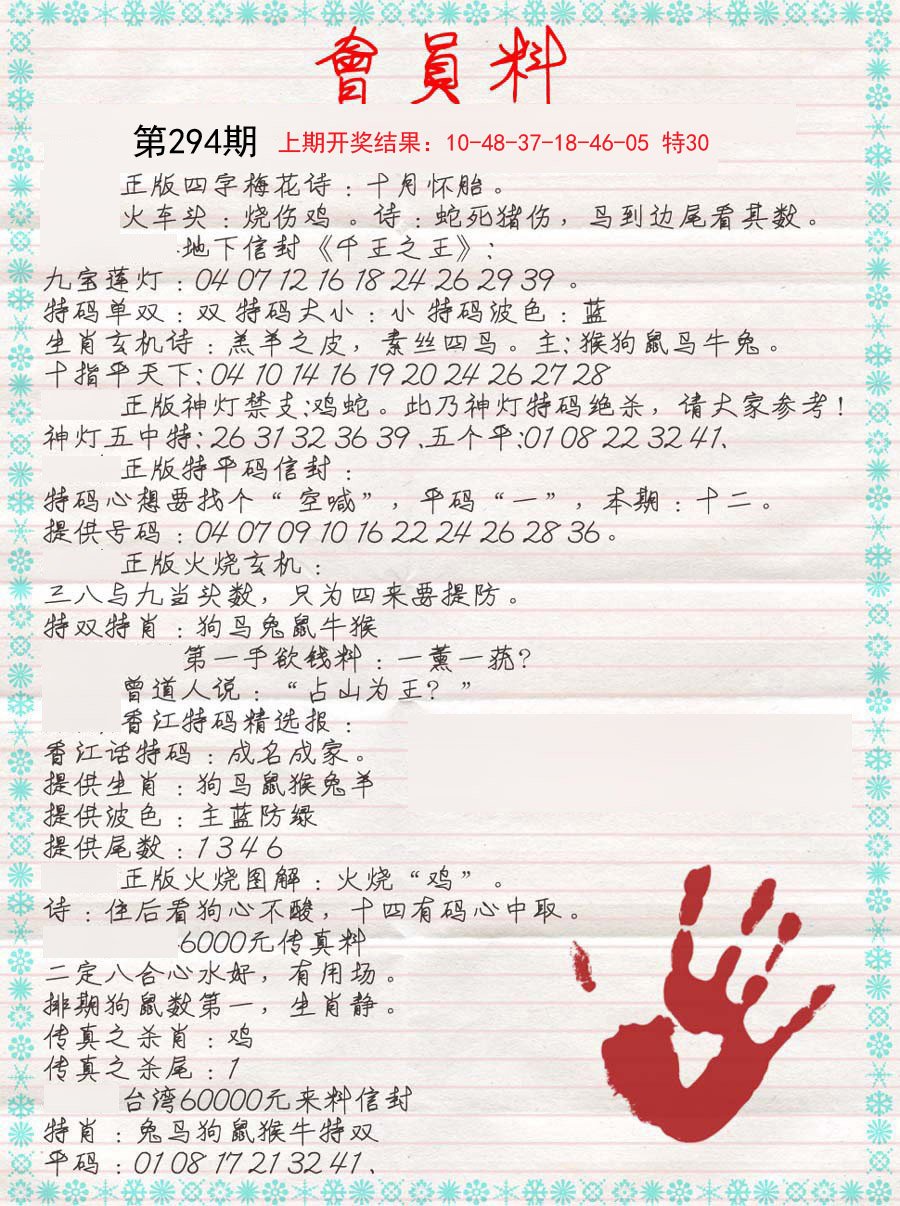 會員料
第294期 上期开奖结果：10-48-37-18-46-05 特30
正版四字梅花诗：十月怀胎。
火车头：烧伤鸡。诗：蛇死猪伤，鸟到边尾看其数。
地下信封《千王之王》：
九宝莲灯：04 07 12 16 18 24 26 29 39 。
特码单双：双 特码大小：小 特码波色：蓝
生肖玄机诗：羔羊之皮，素丝四鸟。主：猴狗鼠鸟牛兔。
十指平天下：04 10 14 16 19 20 24 26 27 28
正版神灯禁支：鸡蛇。此乃神灯特码绝杀，请大家参考！
神灯五中特：26 31 32 36 39、五个平：01 08 22 32 41、
正版特平码信封：
特码心想要找个“空喊”，平码“一”，本期：十二。
提供号码：04 07 09 10 16 22 24 26 28 36。
正版火烧玄机：
三八与九当头数，只为四来要提防。
特双特肖：狗鸟兔鼠牛猴
第一手欲钱料：一薰一莸？
曾道人说：“占山为王？”
香江特码精选报：
香江话特码：成名成家。
提供生肖：狗鸟鼠猴兔羊
提供波色：主蓝防绿
提供尾数：1 3 4 6
正版火烧图解：火烧“鸡”。
诗：住后看狗心不酸，十四有码心中取。
6000元传真料
二定八合心水好，有用场。
排期狗鼠数第一，生肖静。
传真之杀肖：鸡
传真之杀尾：1
台湾60000元来料信封
特肖：兔鸟狗鼠猴牛特双
平码：01 08 17 21 32 41、